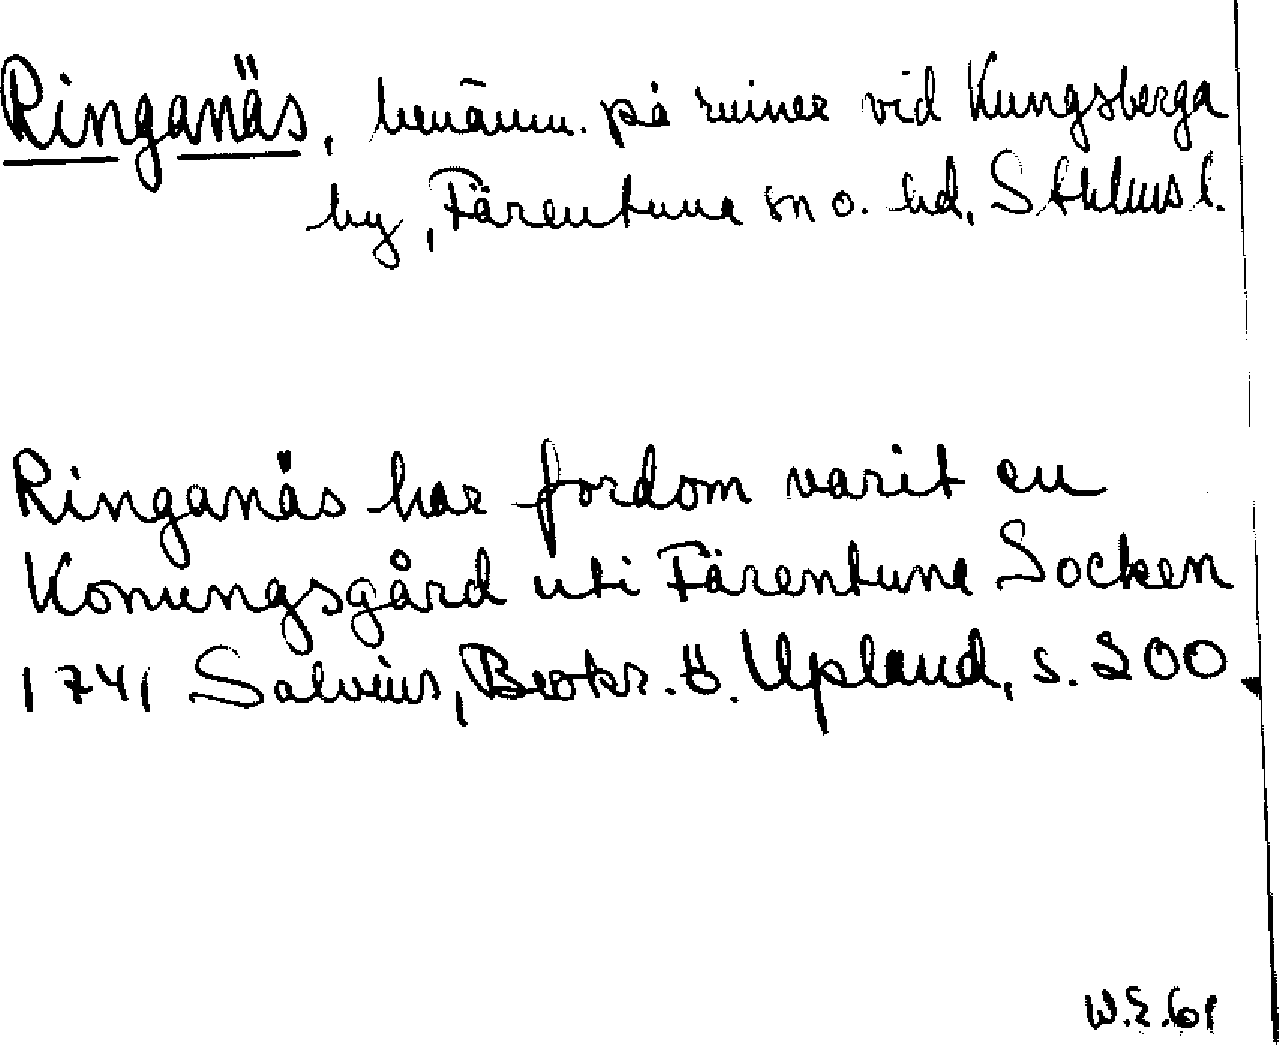 Ringanäs, benämn. på ruiner vid Kungsberga
by, Färentuna sn o. hd, Sthlms l.
Ringanäs har fordom varit en
Konungsgård uti Färentuna Socken
1741 Salvius, Beskr. ö. Upland, s. 200.
W.E.61